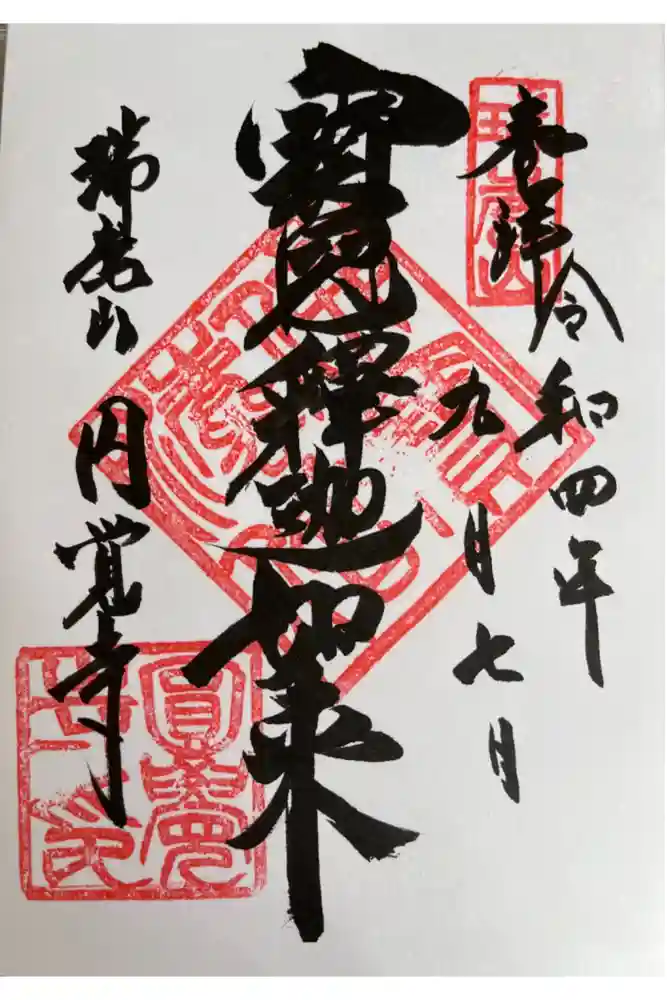 奉拝 令和四年
九月七日
寳冠釋迦如来
瑞鹿山 円覚寺
瑞鹿山